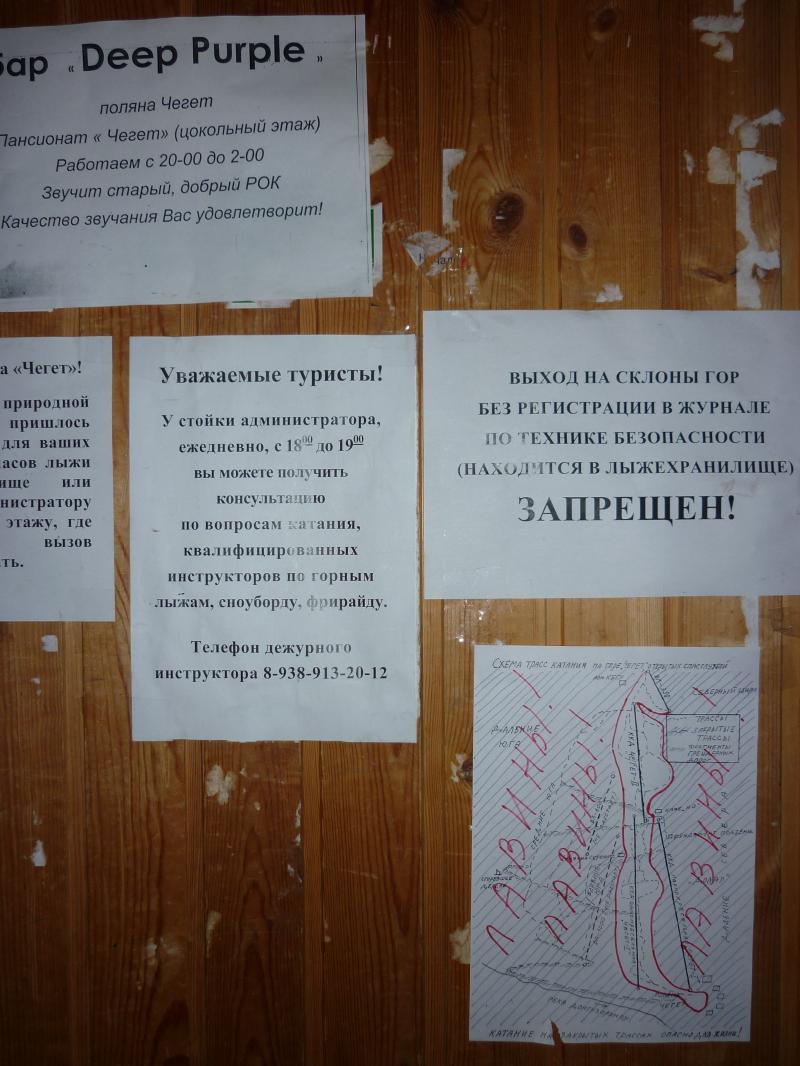 бар « Deep Purple »
поляна Чегет
Пансионат « Чегет» (цокольный этаж)
Работаем с 20-00 до 2-00
Звучит старый, добрый РОК
Качество звучания Вас удовлетворит!
а «Чегет»!
природной
пришлось
для ваших
асов лыжи
ище или
нистратору
этажу, где
вызов
ть.
Уважаемые туристы!
У стойки администратора,
ежедневно, с 18⁰⁰ до 19⁰⁰
вы можете получить
консультацию
по вопросам катания,
квалифицированных
инструкторов по горным
лыжам, сноуборду, фрирайду.
Телефон дежурного
инструктора 8-938-913-20-12
ВЫХОД НА СКЛОНЫ ГОР
БЕЗ РЕГИСТРАЦИИ В ЖУРНАЛЕ
ПО ТЕХНИКЕ БЕЗОПАСНОСТИ
(НАХОДИТСЯ В ЛЫЖЕХРАНИЛИЩЕ)
ЗАПРЕЩЕН!
СХЕМА ТРАСС КАТАНИЯ НА ГОРЕ "ЧЕГЕТ" ОТКРЫТЫХ СПАССЛУЖБОЙ
СЕВЕРНЫЙ ЦИРК
ТРАССЫ
ЗАКРЫТЫЕ
ТРАССЫ
ФРАГМЕНТЫ
ГРЕЙДЕРНЫХ
ДОРОГ
ДАЛЬНИЕ
ЮГА
ККД ЧЕГЕТ-II
ЛАВИНЫ!
ЛАВИНЫ!
ЛАВИНЫ!
ДАЛЬНИЕ СЕВЕРА
ПОЛЯНА
ЧЕГЕТ
РЕКА ДОНГУЗОРУН
КАТАНИЕ НА ЗАКРЫТЫХ ТРАССАХ ОПАСНО ДЛЯ ЖИЗНИ!